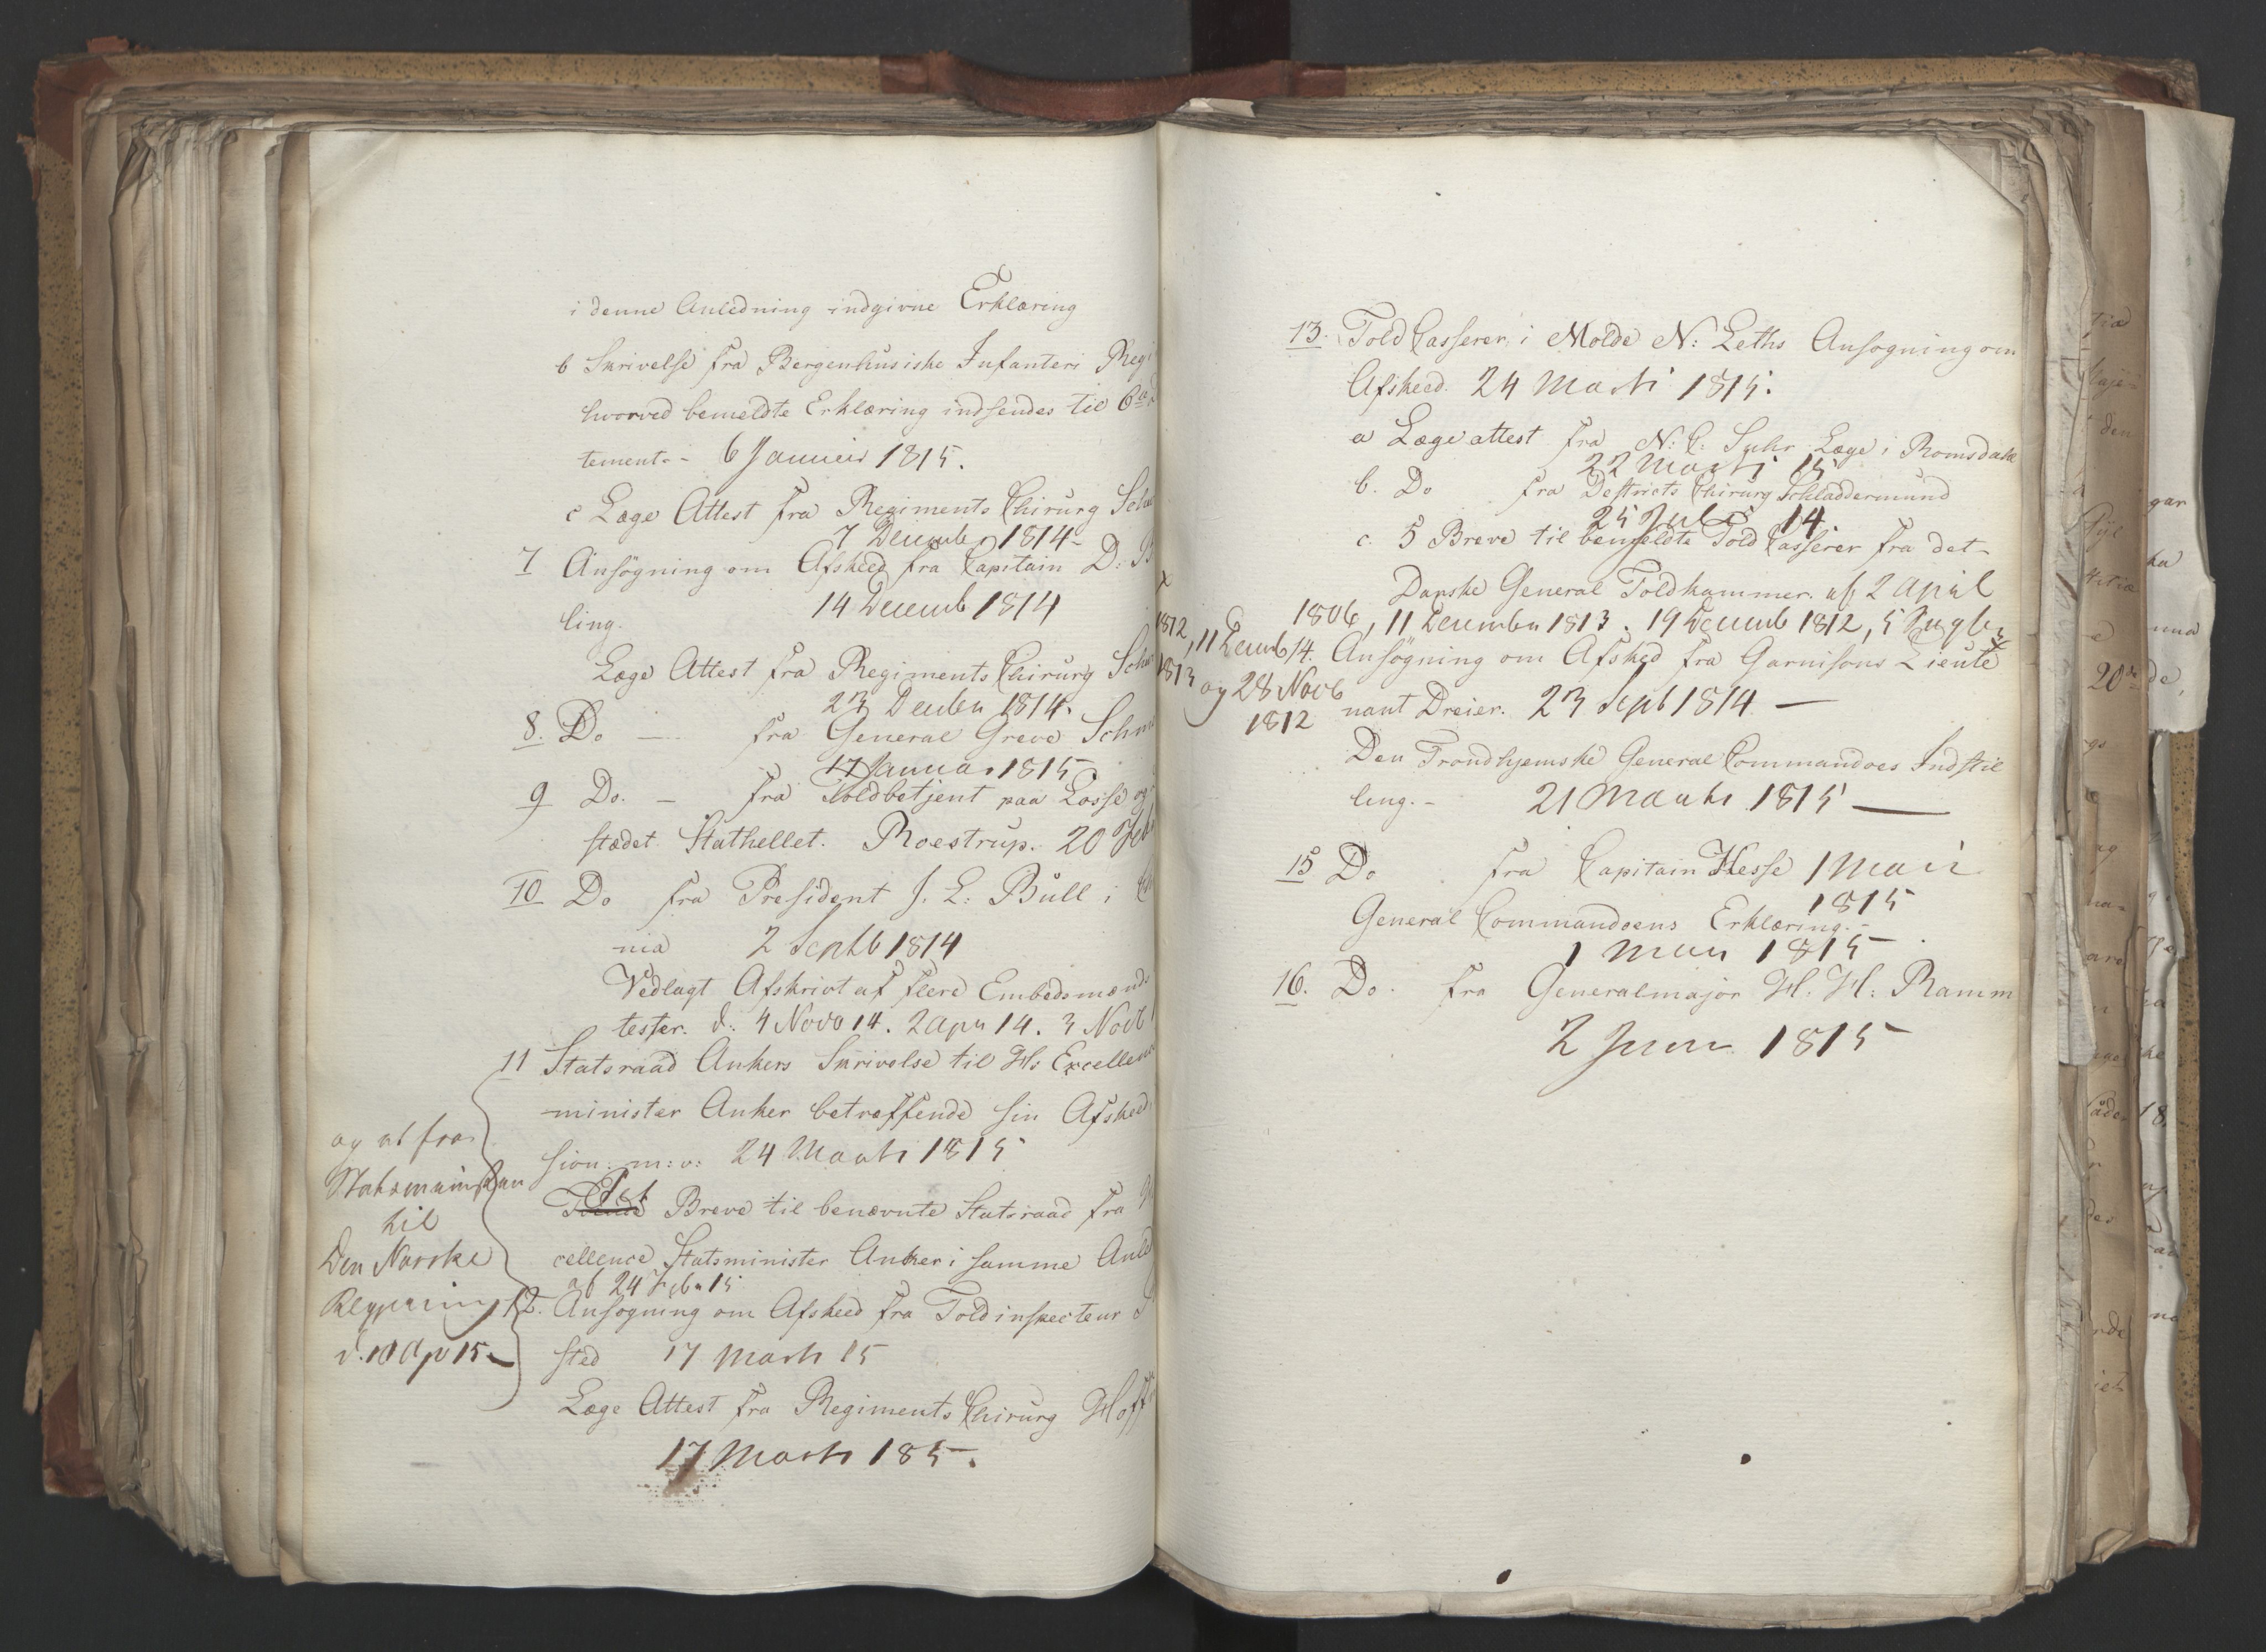 i denne Anledning indgivne Erklæring
b Skrivelse fra Bergenhusiske Infanteri Regi
hvorved bemeldte Erklæring indsendes til
tement.- 6 Januar 1815.
c Læge Attest fra Regiments Chirurg
7 December 1814-
7 Ansögning om Afskeed fra Capitain D: B
ling. 14 Decemb 1814
Læge Attest fra Regiments Chirurg
23 Decber 1814.
8. Do — fra General Greve Schm
17 Januar 1815
9 Do. - fra Toldbetjent paa Losse og
stædet Stathellet. Roestrup. 20 Feb
10 Do fra President J. L: Bull i Ch
nia 2 Septb 1814
Vedlagt Afskrivt af flere Embedsmænds
tester. d: 4 Novb 14. 2 Apr 14. 3 Novb
11 Statsraad Ankers Skrivelse til Hs Excellen
minister Anker betreffende sin Afskeed
sion: m: v: 24 Marti 1815
Et
Tvende Breve til benævnte Statsraad fra
cellence Statsminister Anker i samme Anled
af 24 Febr 15
12. Ansøgning om Afskeed fra Toldinspecteur
sted 17 Marti 15
Læge Attest fra Regiments Chirurg Hoff
17 Marti 185-.
og et fra
Statsministeren
til
Den Norske
Regjering
d. 10 Apr 15-
13. Told Casserer i Molde N: Leths Ansøgning om
Afskeed. 24 Marti 1815.
a Læge attest fra N: C: Suhr Læge i Romsdale
22 Marti 15
b. Do fra Destricts Chirurg Schladdermund
25 Juli 14
c. 5 Breve til bemeldte Told Casserer fra det-
Danske General Toldkammer. af 2 April
1806, 11 December 1813. 19 Decemb 1812, 5
1812, 11 Decemb
1813 og 28 Novb
1812
14. Ansögning om Afsked fra Garnisons Lieute
nant Dreier. 23 Sept 1814 —
Den Trondhjemske General Commandoes Indstil
ling. - 21 Marti 1815 —
15 Do fra Capitain Hesse 1 Mai
1815
General Commandoens Erklæring.-
1 Mai 1815
16. Do. fra Generalmajor H. H: Ramm
2 Juni 1815